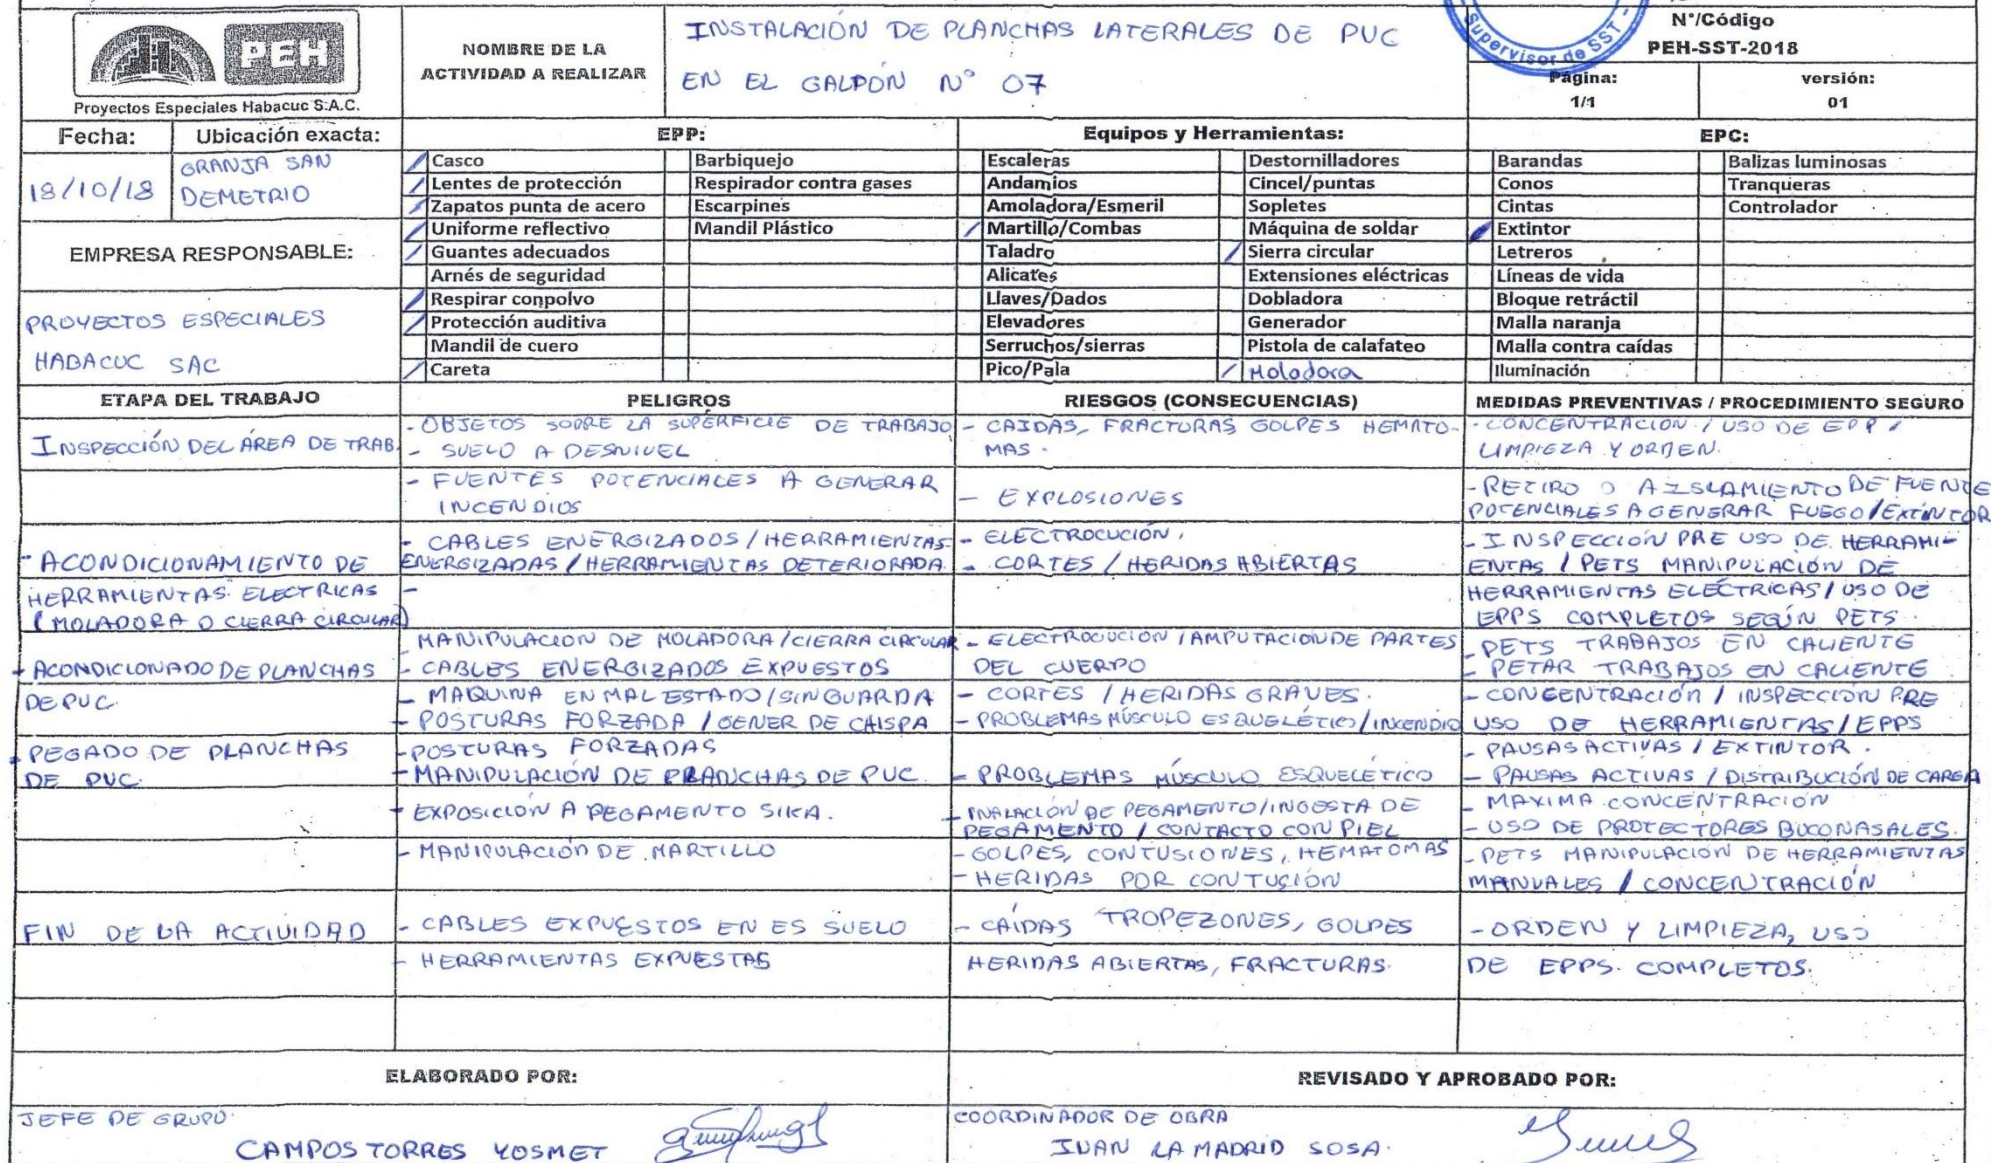 PEH
Proyectos Especiales Habacuc S.A.C.
NOMBRE DE LA
ACTIVIDAD A REALIZAR
INSTALACIÓN DE PLANCHAS LATERALES DE PVC
EN EL GALPÓN N° 07
Supervisor de SST
N°/Código
PEH-SST-2018
Página:
1/1
versión:
01
Fecha:
Ubicación exacta:
18/10/18
GRANJA SAN
DEMETRIO
EMPRESA RESPONSABLE:
PROYECTOS ESPECIALES
HABACUC SAC
EPP:
Casco
Lentes de protección
Zapatos punta de acero
Uniforme reflectivo
Guantes adecuados
Arnés de seguridad
Respirar conpolvo
Protección auditiva
Mandil de cuero
Careta
Barbiquejo
Respirador contra gases
Escarpines
Mandil Plástico
Equipos y Herramientas:
Escaleras
Andamios
Amoladora/Esmeril
Martillo/Combas
Taladro
Alicates
Llaves/Dados
Elevadores
Serruchos/sierras
Pico/Pala
Destornilladores
Cincel/puntas
Sopletes
Máquina de soldar
Sierra circular
Extensiones eléctricas
Dobladora
Generador
Pistola de calafateo
Moladora
EPC:
Barandas
Conos
Cintas
Extintor
Letreros
Líneas de vida
Bloque retráctil
Malla naranja
Malla contra caídas
Iluminación
Balizas luminosas
Tranqueras
Controlador
ETAPA DEL TRABAJO
PELIGROS
RIESGOS (CONSECUENCIAS)
MEDIDAS PREVENTIVAS / PROCEDIMIENTO SEGURO
INSPECCIÓN DEL ÁREA DE TRAB.
- OBJETOS SOBRE LA SUPERFICIE DE TRABAJO
- SUELO A DESNIVEL
- CAIDAS, FRACTURAS GOLPES HEMATO-
MAS.
- CONCENTRACION / USO DE EPP /
LIMPIEZA Y ORDEN.
- FUENTES POTENCIALES A GENERAR
INCENDIOS
- EXPLOSIONES
- RETIRO O AISLAMIENTO DE FUENTE
POTENCIALES A GENERAR FUEGO/EXTINTOR
- ACONDICIONAMIENTO DE
HERRAMIENTAS ELECTRICAS
(MOLADORA O CIERRA CIRCULAR)
- CABLES ENERGIZADOS / HERRAMIENTAS
ENERGIZADAS / HERRAMIENTAS DETERIORADA
-
- ELECTROCUCIÓN,
- CORTES / HERIDAS ABIERTAS
- INSPECCIÓN PRE USO DE HERRAMI-
ENTAS / PETS MANIPULACIÓN DE
HERRAMIENTAS ELÉCTRICAS / USO DE
EPPS COMPLETOS SEGÚN PETS.
- ACONDICIONADO DE PLANCHAS
DE PVC
MANIPULACION DE MOLADORA/CIERRA CIRCULAR
- CABLES ENERGIZADOS EXPUESTOS
- MAQUINA EN MAL ESTADO/SIN GUARDA
- POSTURAS FORZADA / GENER DE CHISPA
- ELECTROCUCION / AMPUTACION DE PARTES
DEL CUERPO
- CORTES / HERIDAS GRAVES.
- PROBLEMAS MÚSCULO ESQUELÉTICO/INCENDIO
- PETS TRABAJOS EN CALIENTE
- PETAR TRABAJOS EN CALIENTE
- CONCENTRACIÓN / INSPECCIÓN PRE
USO DE HERRAMIENTAS / EPPS
- PAUSAS ACTIVAS / EXTINTOR.
- PEGADO DE PLANCHAS
DE PVC.
- POSTURAS FORZADAS
- MANIPULACIÓN DE PLANCHAS DE PVC.
- PROBLEMAS MÚSCULO ESQUELÉTICO
- PAUSAS ACTIVAS / DISTRIBUCIÓN DE CARGA
- EXPOSICIÓN A PEGAMENTO SIKA.
- INALACIÓN DE PEGAMENTO/INGESTA DE
PEGAMENTO / CONTACTO CON PIEL
- MAXIMA CONCENTRACIÓN
- USO DE PROTECTORES BUCONASALES.
- MANIPULACIÓN DE MARTILLO
- GOLPES, CONTUSIONES, HEMATOMAS
- HERIDAS POR CONTUCIÓN
- PETS MANIPULACIÓN DE HERRAMIENTAS
MANUALES / CONCENTRACIÓN
FIN DE LA ACTIVIDAD
- CABLES EXPUESTOS EN ES SUELO
- HERRAMIENTAS EXPUESTAS
- CAÍDAS TROPEZONES, GOLPES
HERIDAS ABIERTAS, FRACTURAS.
- ORDEN Y LIMPIEZA, USO
DE EPPS. COMPLETOS.
ELABORADO POR:
REVISADO Y APROBADO POR:
JEFE DE GRUPO.
CAMPOS TORRES YOSMET
COORDINADOR DE OBRA
IVAN LA MADRID SOSA.